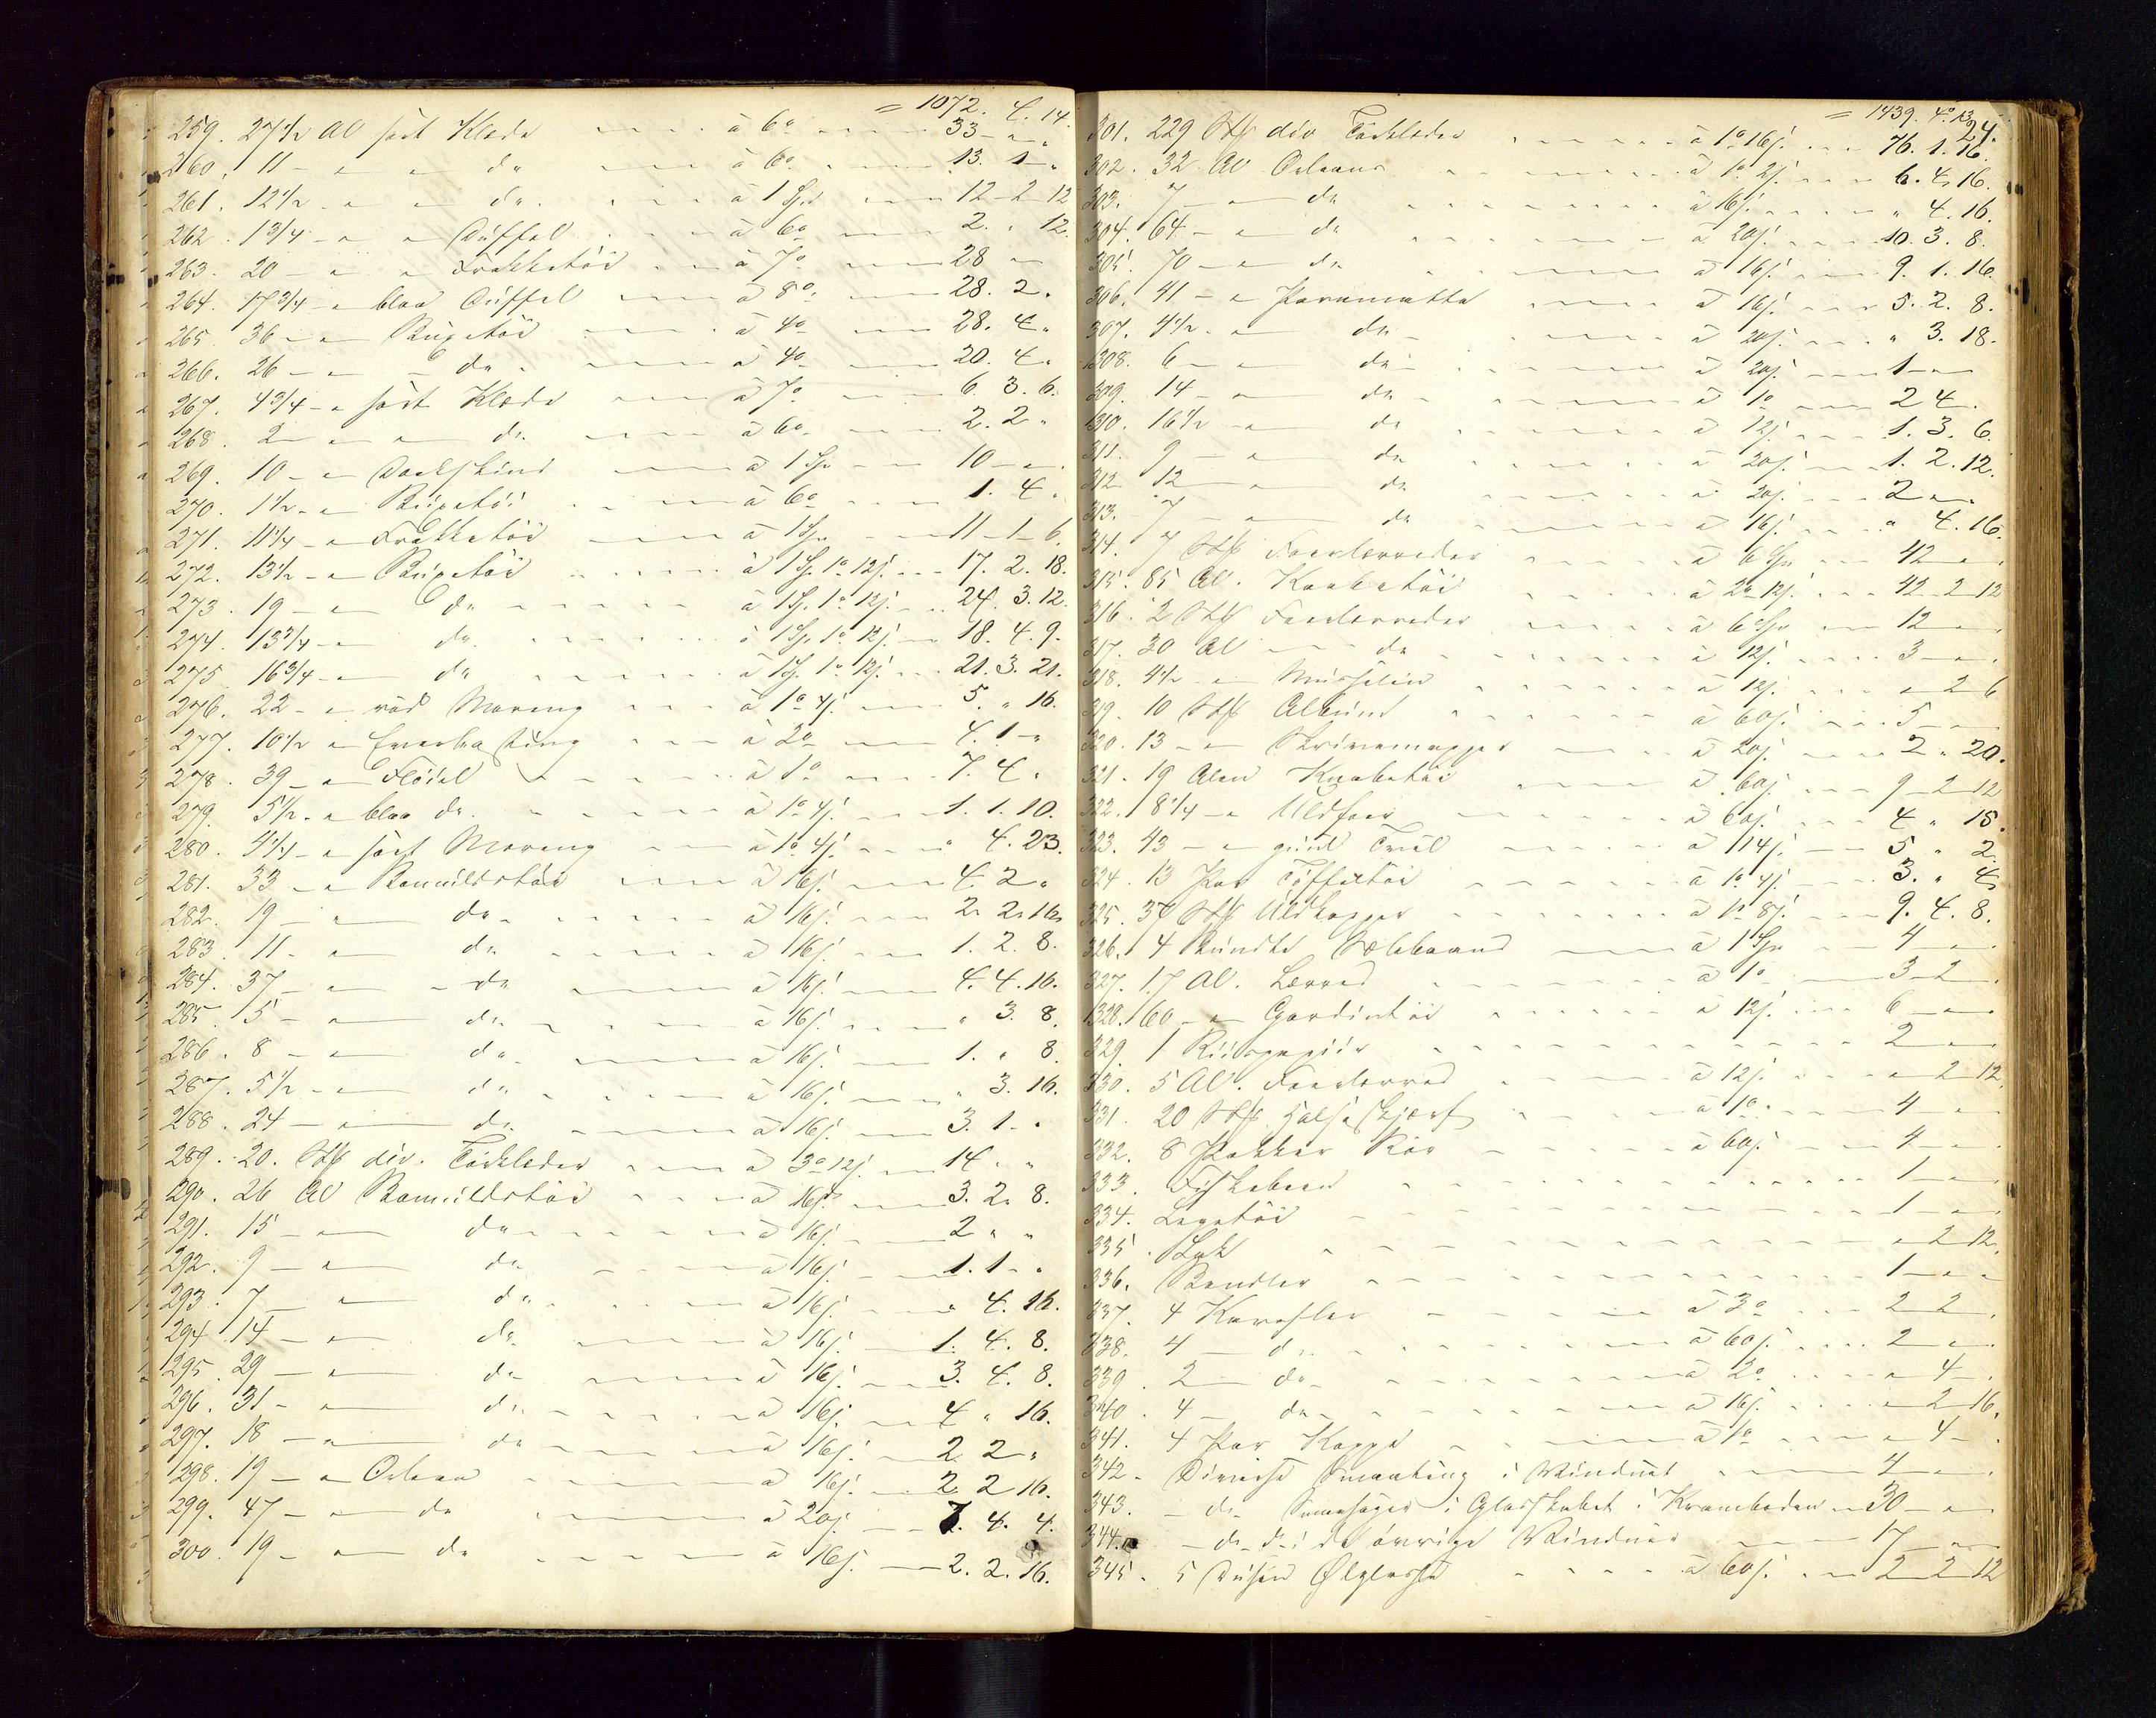 = 1072. 4. 14.
259. 27 1/2 Al sort Klæde à 6o 33 " "
260. 11 " " do à 6o 13. 1 "
261. 12 1/2 " " do à 1 Sp 12 2 12
262. 1 3/4 " " Düffel à 6o 2. " 12.
263. 20 " " Frakketöi à 7o 28 "
264. 17 3/4 " blaa Düffel à 8o 28. 2.
265. 36 " Buxetöi à 4o 28. 4 "
266. 26 " do à 4o 20. 4 "
267. 4 3/4 " sort Klæde à 7o 6 3. 6.
268. 2 " " do à 6o 2. 2 "
269. 10 " Doeskind à 1 Sp 10 "
270. 1 1/2 " Buxetöi à 6o 1. 4 "
271. 11 1/4 " Frakketöi à 1 Sp 11 1 6.
272. 13 1/2 " Buxetöi à 1 Sp. 1o 12 s. 17. 2. 18.
273. 19 " do à 1 Sp. 1o 12 s. 24. 3. 12.
274. 13 3/4 " do à 1 Sp. 1o 12 s. 18. 4. 9.
275. 16 3/4 " do à 1 Sp. 1o 12 s. 21. 3. 21.
276. 22 " röd Moreng à 1o 4 s. 5. " 16.
277. 10 1/2 " Everlasting à 2o 4. 1 "
278. 39 " Flöiel à 1o 7. 4 "
279. 5 1/2 " blaa do. à 1o 4 s. 1. 1. 10.
280. 4 1/4 " sort Moreng à 1o 4 s. " 4. 23.
281. 33 " Bomuldstöi à 16 s. 4. 2 "
282. 19 " do à 16 s. 2. 2. 16.
283. 11 " do à 16 s. 1. 2. 8.
284. 37 " do à 16 s. 4. 4. 16.
285. 5 " do à 16 s. " 3. 8.
286. 8 " do à 16 s. 1. " 8.
287. 5 1/2 " do à 16 s. " 3. 16.
288. 24 " do à 16 s. 3. 1 "
289. 20. Stk div. Törklæder à 3o 12 s. 14 " "
290. 26 Al Bomuldstöi à 16 s. 3. 2. 8.
291. 15 " do à 16 s. 2 " "
292. 9 " do à 16 s. 1. 1 "
293. 7 " do à 16 s. " 4. 16.
294. 14 " do à 16 s. 1. 4. 8.
295. 29 " do à 16 s. 3. 4. 8.
296. 31 " do à 16 s. 4 " 16.
297. 18 " do à 16 s. 2 2 "
298. 19 " Orlean à 16 s. 2 2 16.
299. 47 " do à 20 s. 7. 4. 4.
300. 19 " do à 16 s. 2. 2. 16.
= 1439. 4o 13
24.
301. 229 Stk div Törklæder à 1o 16 s. 76. 1. 16.
302. 32. Al Orleans à 1o 2 s. 6. 4 16.
303. 7 " do à 16 s. " 4. 16.
304. 64 " do à 20 s. 10. 3. 8.
305. 70 " do à 16 s. 9. 1. 16.
306. 41 " Paramatta à 16 s. 5. 2. 8.
307. 4 1/2 " do à 20 s. " 3. 18.
308. 6 " do à 20 s. 1 "
309. 14 " do à 1o 2 4.
310. 16 1/2 " do à 12 s. 1. 3. 6.
311. 9 " do à 20 s. 1. 2. 12.
312 12 " do à 20 s. 2 "
313. 7 " do à 16 s. " 4. 16.
314. 7 Stk Foerlærreder à 6 Sp 42 "
315. 85 Al. Knabetöi à 2o 12 s. 42 2 12
316. 2 Stk Foerlærreder à 6 Sp 12 "
317. 30 Al do à 12 s. 3 "
318. 4 1/2 " Musselin à 12 s. " 2 6
319. 10 Stk Album à 60 s. 5 "
320. 13 " Skrivemapper à 20 s. 2 " 20.
321. 19 Alen Knabetöi à 60 s. 9 2 12
322. 8 1/4 " Uldfoer à 60 s. 4 " 15.
323. 43 " Twil à 14 s. 5 " 2.
324. 13 Par Töffeltöi à 1o 4 s. 3. " 4
325. 37 Stk Uldkapper à 1o 8 s. 9. 4. 8.
326. 4 Bundter à 1 Sp 4 "
327. 17 Al. Lærred à 1o 3 2
328. 60 " Gardintöi à 12 s. 6 "
329. 1 Riispapiir 2 "
330. 5 Al. Foerlærred à 12 s. " 2 12.
331. 20 Stk Halsskjærf à 1o 4 "
332. 8 Pakker Rör à 60 s. 4 "
333. Fiskebeen 1 "
334. Legetöi 1 "
335. Lak " 2 12.
336. Bændler 1 "
337. 4 Karafler à 3o 2 2
338. 4 " do à 60 s. 2 "
339. 2 do à 2o " 4
340. 4 do à 16 s. " 2 16.
341. 4 Par Koppe à 1o " 4
342. Diverse Smaating i Vinduet 4 "
343. " do Smaasager i Glasskabet i Kramboden 30 "
344. " do do i de övrige Vinduer 17 "
345. 5 Dusin Ølglasse à 60 s. 2 2 12